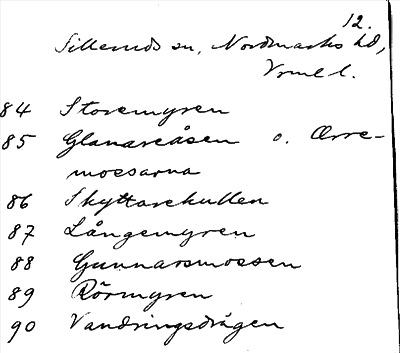 12.
Silleruds sn, Nordmarks hd,
Vrml l.
84 Storemyren
85 Glanareåsen o. Orre-
mossarna
86 Skyttarekullen
87 Långemyren
88 Gunnarsmossen
89 Rörmyren
90 Vandringsvägen